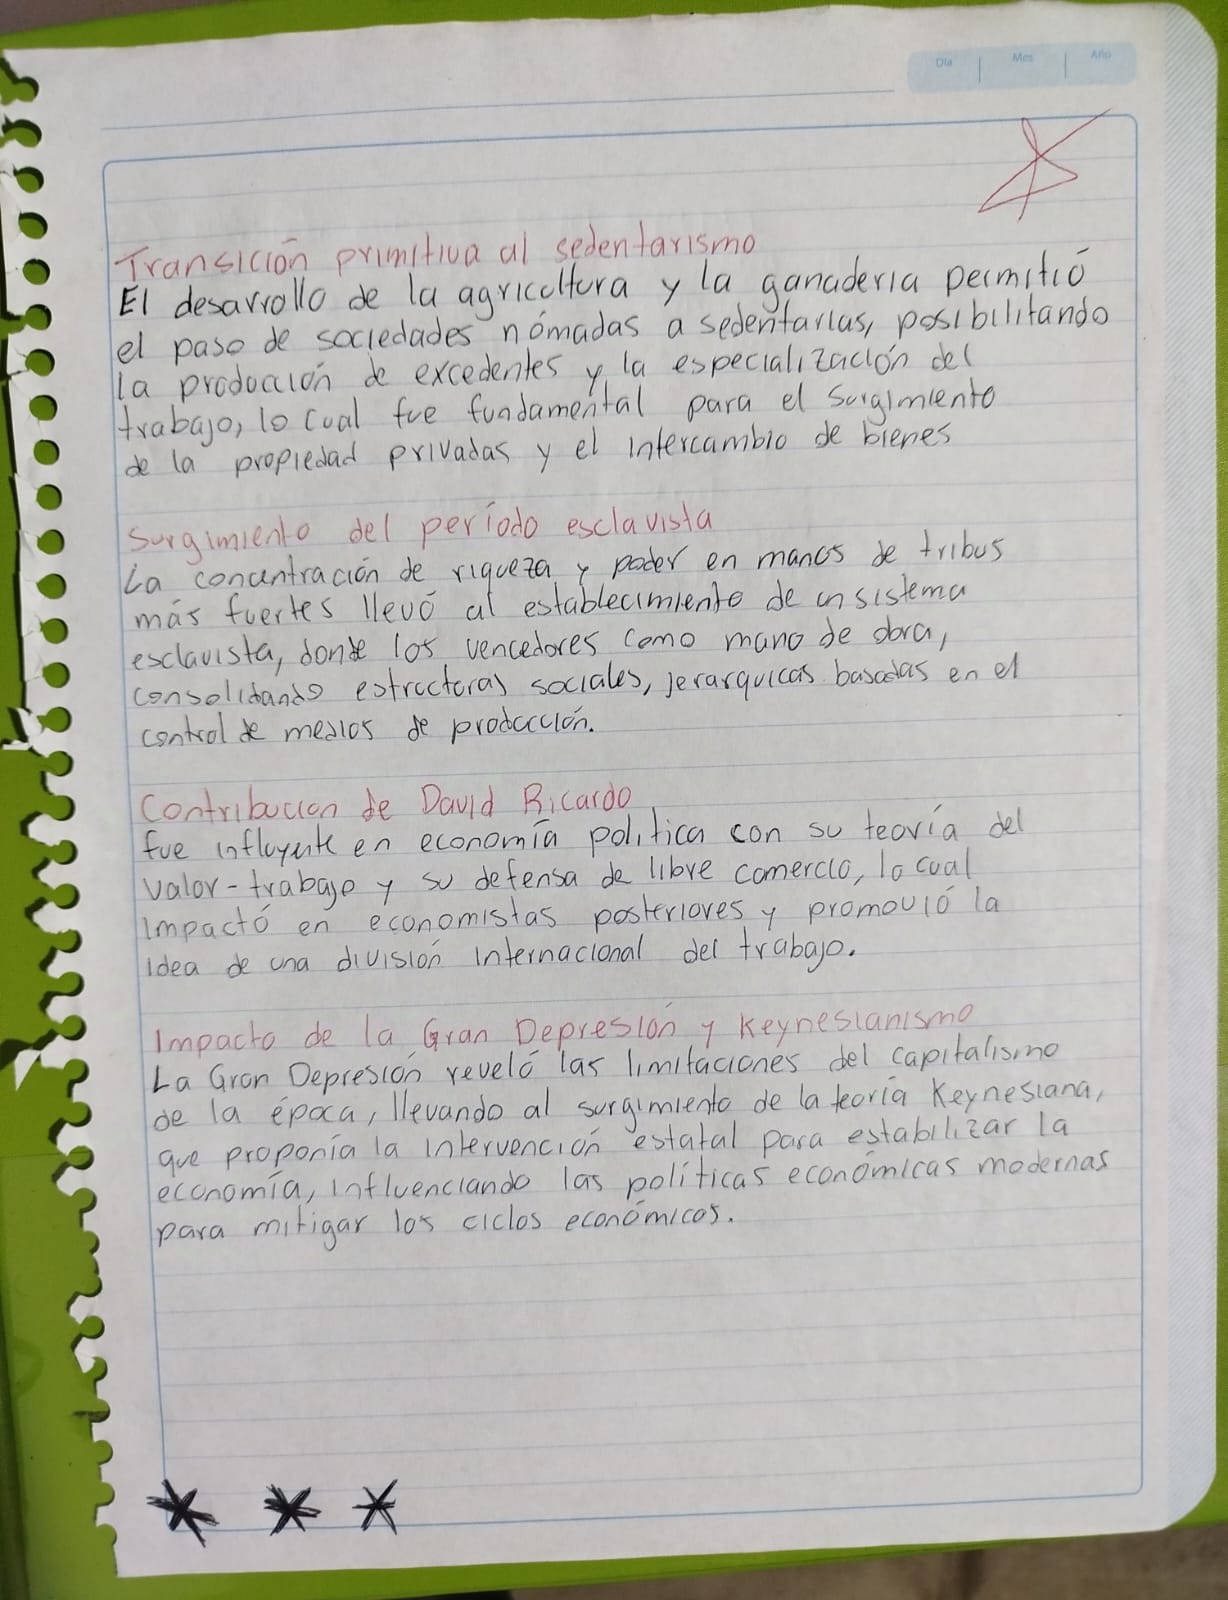 Día Mes Año
Transición primitiva al sedentarismo
El desarrollo de la agricultura y la ganadería permitió
el paso de sociedades nómadas a sedentarias, posibilitando
la producción de excedentes y la especialización del
trabajo, lo cual fue fundamental para el surgimiento
de la propiedad privadas y el intercambio de bienes
Surgimiento del período esclavista
La concentración de riqueza y poder en manos de tribus
más fuertes llevó al establecimiento de un sistema
esclavista, donde los vencedores como mano de obra,
consolidando estructuras sociales, jerarquicas basadas en el
control de medios de producción.
Contribucion de David Ricardo
fue influyente en economía política con su teoría del
valor-trabajo y su defensa de libre comercio, lo cual
impactó en economistas posteriores y promovió la
idea de una división internacional del trabajo.
Impacto de la Gran Depresión y Keynesianismo
La Gran Depresión reveló las limitaciones del capitalismo
de la época, llevando al surgimiento de la teoría Keynesiana,
que proponía la intervención estatal para estabilizar la
economía, influenciando las políticas económicas modernas
para mitigar los ciclos económicos.